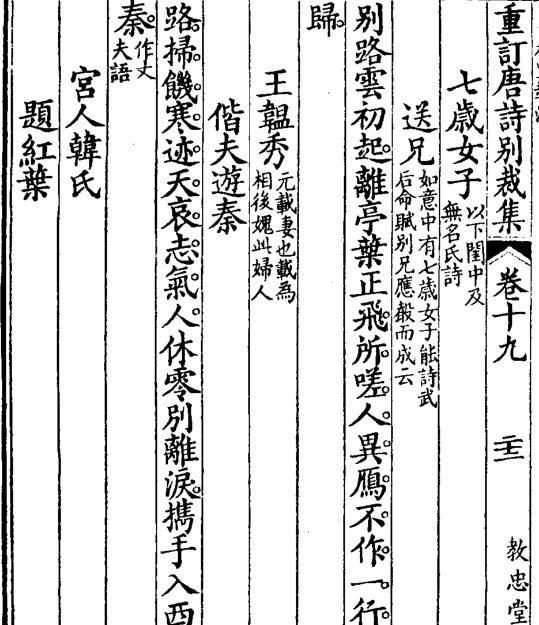 重訂唐詩別裁集 卷十九 二十二 教忠堂
七歲女子 以下閨中及無名氏詩
送兄 如意中有七歲女子能詩武后命賦別兄應聲而成云
別路雲初起。離亭葉正飛。所嗟人異鴈。不作一行。
歸。
王韞秀 元載妻也載為相後媿此婦人
偕夫遊秦
路掃饑寒迹。天哀志氣人。休零別離淚。攜手入西
秦。作丈夫語
宮人韓氏
題紅葉